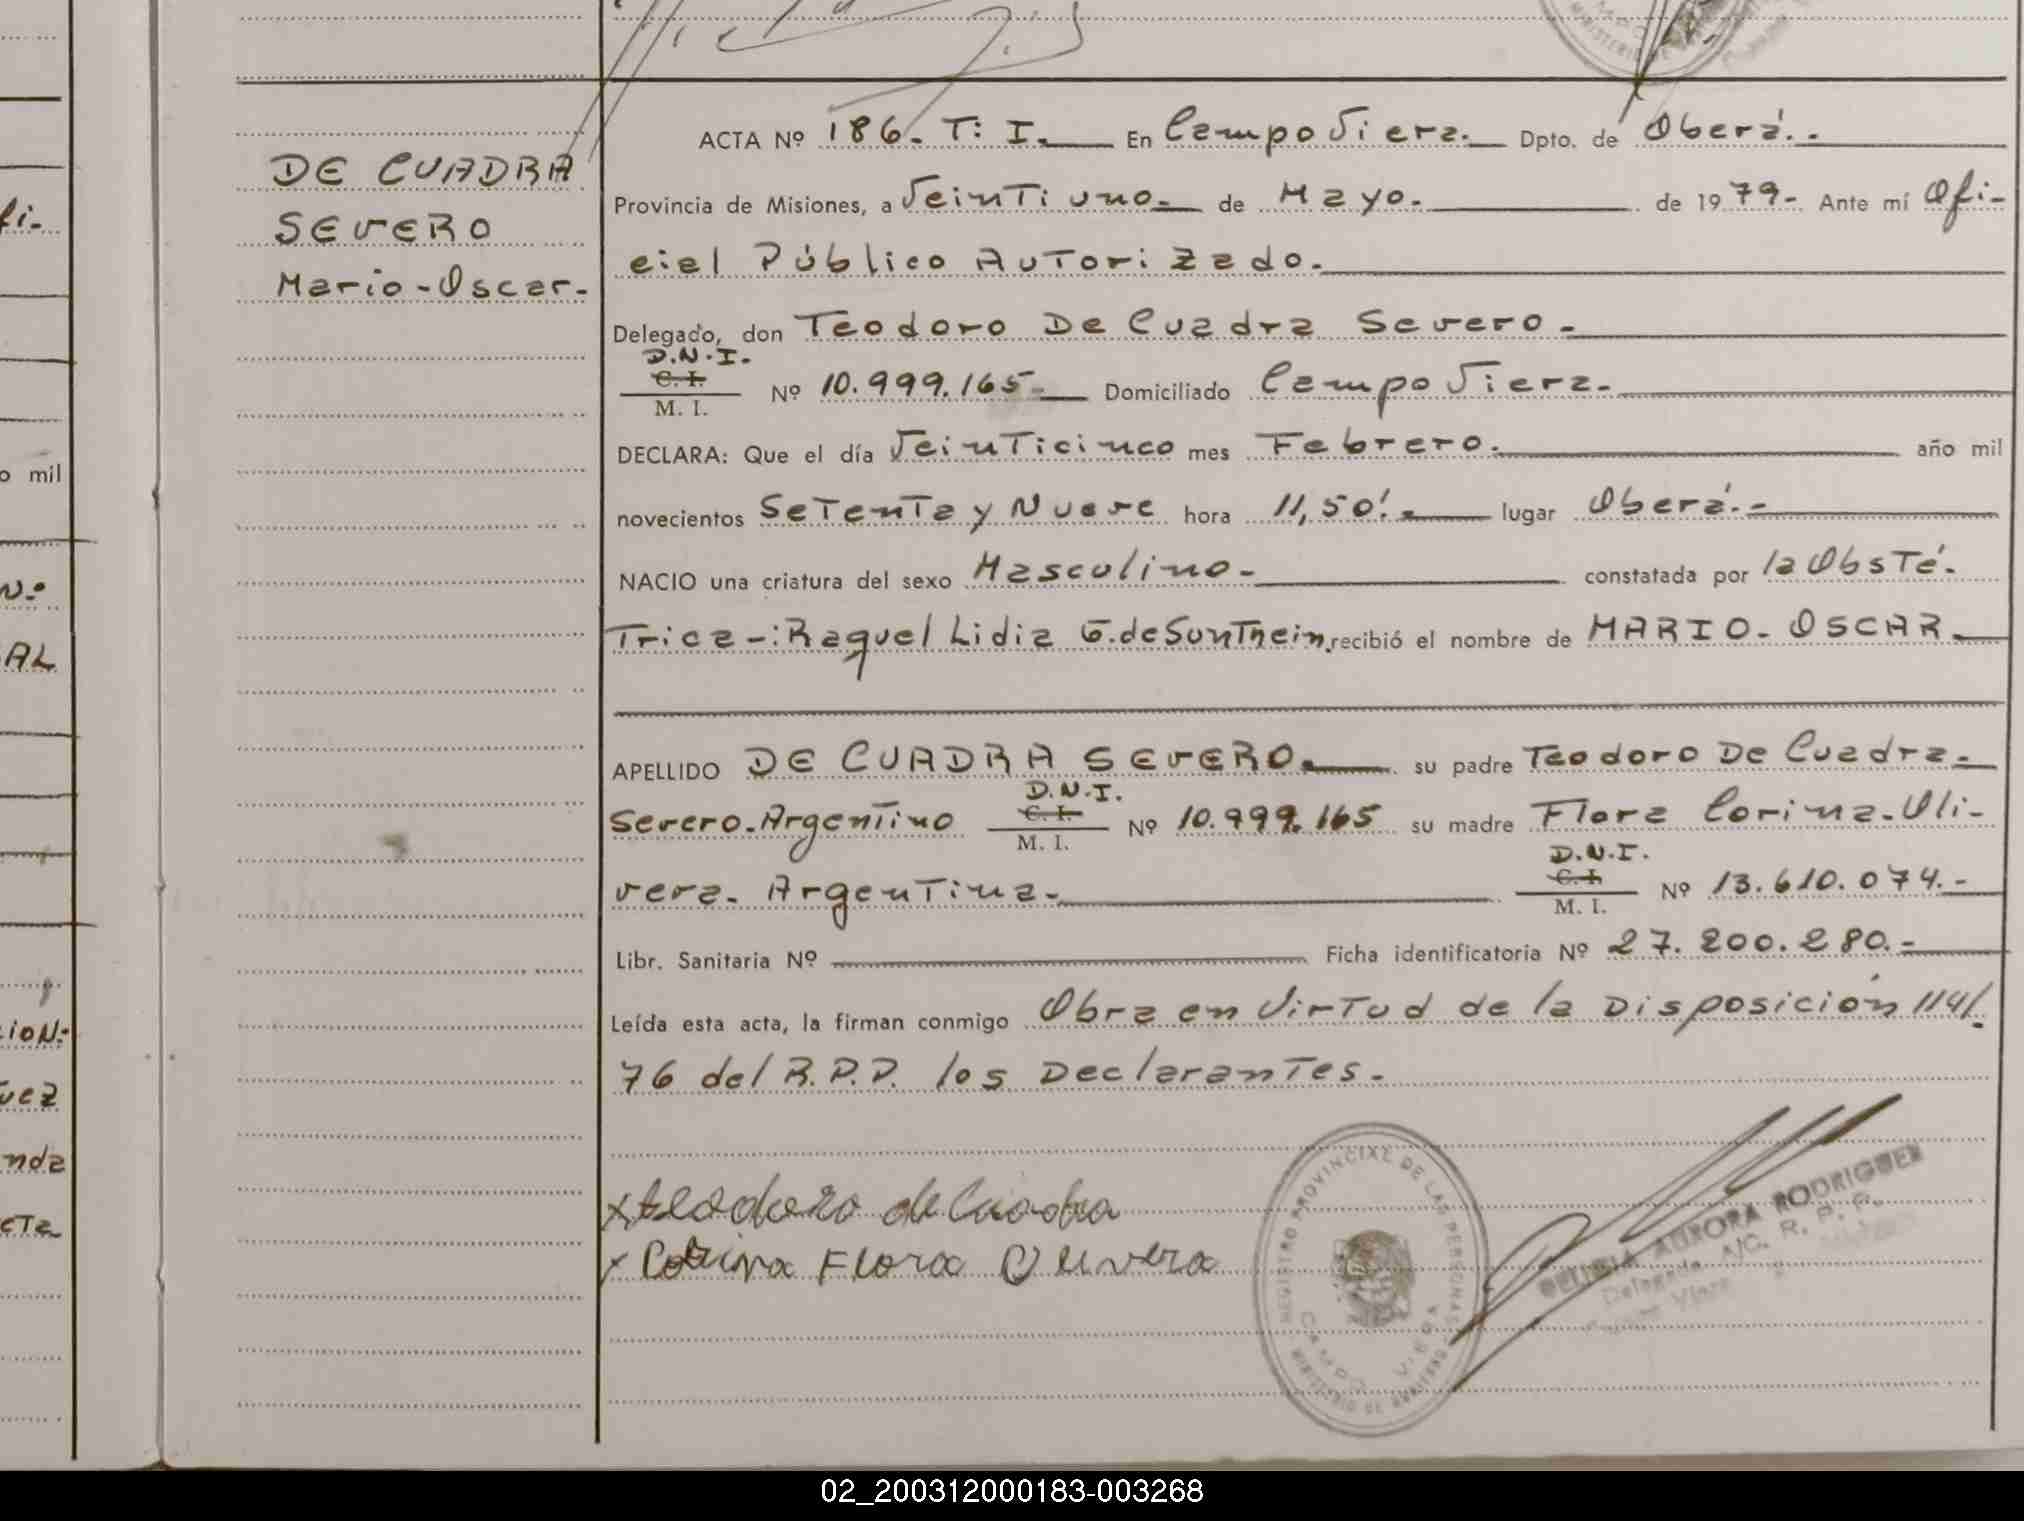 DE CUADRA
SEVERO
Mario-Oscar.-
ACTA Nº 186. T: I. En Campo Viera. Dpto. de Oberá.-
Provincia de Misiones, a Veinti uno. de Mayo. de 1979.- Ante mí Ofi-
cial Público Autorizado.
Delegado, don Teodoro De Cuadra Severo.
D.N.I.
C. I.
M. I.
Nº 10.999.165.- Domiciliado Campo Viera.
DECLARA: Que el día Veinticinco mes Febrero. año mil
novecientos Setenta y Nueve hora 11,50'. lugar Oberá.-
NACIO una criatura del sexo Masculino. constatada por la Obsté.
Trica-:Raquel Lidia G.de Sunthein. recibió el nombre de MARIO-OSCAR.
APELLIDO DE CUADRA SEVERO. su padre Teodoro De Cuadra-
Severo.Argentino D.N.I. C. I. M. I. Nº 10.999.165 su madre Flora Corina-Oli-
vera. Argentina. D.N.I. C. I. M. I. Nº 13.610.074.-
Libr. Sanitaria Nº Ficha identificatoria Nº 27.200.280.-
Leída esta acta, la firman conmigo Obra en Virtud de la Disposición 114/.
76 del R.P.P. los Declarantes.
x teodoro de Cuadra
x Corina Flora Olivera
REGISTRO PROVINCIAL DE LAS PERSONAS
CAMPO VIERA
MINISTERIO DE GOBIERNO
AURORA RODRIGUEZ
Delegada A/C. R. P. P.
Campo Viera
fi-
o mil
N.-
AL
CION:
uez
nda
cta
02_200312000183-003268